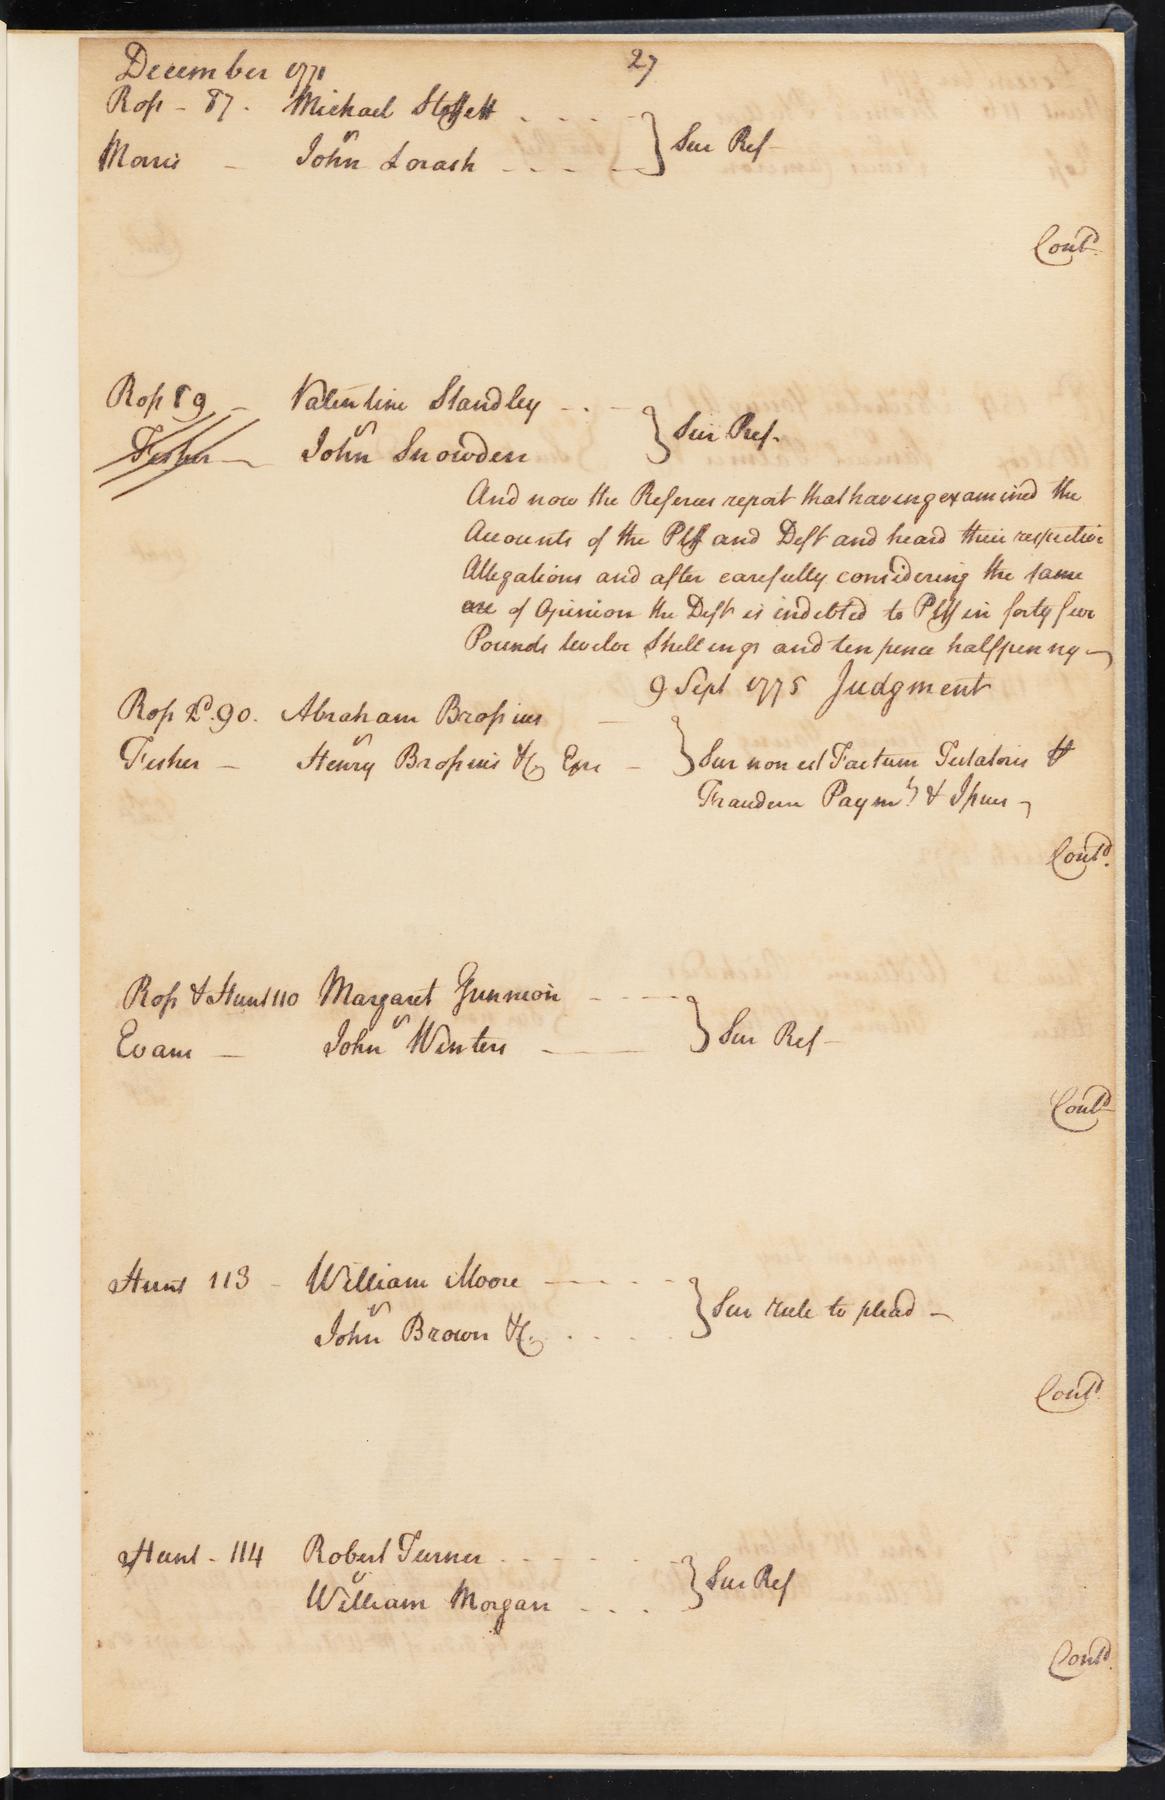 December 1771 27
Ross - 87. Michael Stoffett . . . . } Sur Ref -
vs
Morris - John Lorash . . . .
Contd.
Ross 89 - Valentine Standley - . - } Sur Ref.
vs
Fisher - John Snowden
And now the Referees report that having examined the
Accounts of the Plff and Deft and heard their respective
Allegations and after carefully considering the same
are of Opinion the Deft is indebted to Plff in forty five
Pounds twelve Shillings and ten pence halfpenny -
9 Sept 1775 Judgment
Ross Pd. 90. Abraham Brosius - } Sur non est Factum Testatoris &
vs
Fisher - Henry Brosius &c Exr -
Fraudem Paymt. & Issues -
Contd.
Ross & Hunt 110 Margaret Gunneon - - - - } Sur Ref -
vs
Evans - John Winters - -
Contd
Hunt 113 - William Moore - - - - - } Sur rule to plead -
vs
John Brown &c. . . . .
Contd.
Hunt - 114 Robert Turner . - . - - . } Sur Ref
vs
William Morgan . . .
Contd.